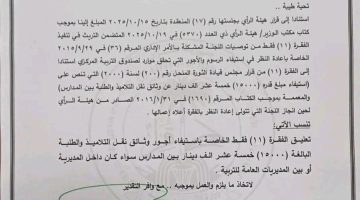 تحية طيبة ...
استنادا إلى قرار هيئة الرأي بجلستها رقم (١٧) المنعقدة بتاريخ ٢٠٢٥/١٠/١٥ المبلغ إلينا بموجب
كتاب مكتب الوزير/ هيأة الرأي ذي العدد (٥٣٧٠) في ٢٠٢٥/١٠/١٩ المتضمن التريث في تنفيذ
الفقرة (١١) فقط من توصيات اللجنة المشكلة بالأمر الإداري المرقم (٣٦) في ٢٠١٥/٩/٢٩
الخاصة بإعادة النظر في استيفاء الرسوم والأجور التي تحقق موارد لصندوق التربية المركزي استنادا
إلى الفقرة (١١) من قرار مجلس قيادة الثورة المنحل رقم (٩٠٠) لسنة (٢٠٠٠) التي تنص على
(استيفاء مبلغ قدره (١٥٠٠٠) خمسة عشر الف دينار عن وثائق نقل التلاميذ والطلبة بين المدارس)
والمعممة بموجب الكتاب المرقم (١٦٩٠) في ٢٠١٦/١/٣١ الصادر من هيئة الرأي
لحين انجاز اللجنة التي تتولى إعادة النظر بالفقرة أعلاه إعمالها .
تنسب الآتي:
تعليق الفقرة (١١) فقط الخاصة باستيفاء أجور وثائق نقل التلاميذ والطلبة
البالغة (١٥٠٠٠) خمسة عشر الف دينار بين المدارس سواء كان داخل المديرية
أو بين المديريات العامة للتربية .
لاتخاذ ما يلزم والعمل بموجبه .. مع وافر التقدير